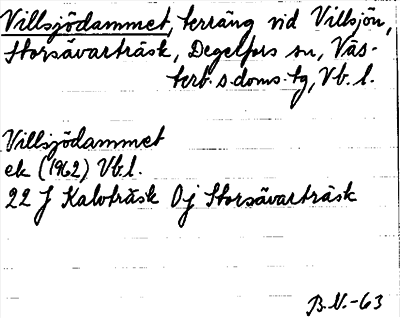 Villsjödammet, terräng vid Villsjön,
Storsävarträsk, Degerfors sn, Väs-
terb. s. doms. tg, Vb. l.
Villsjödammet
ek (1962) Vb l.
22 J Kalvträsk 0j Storsävarträsk
B.N.-63